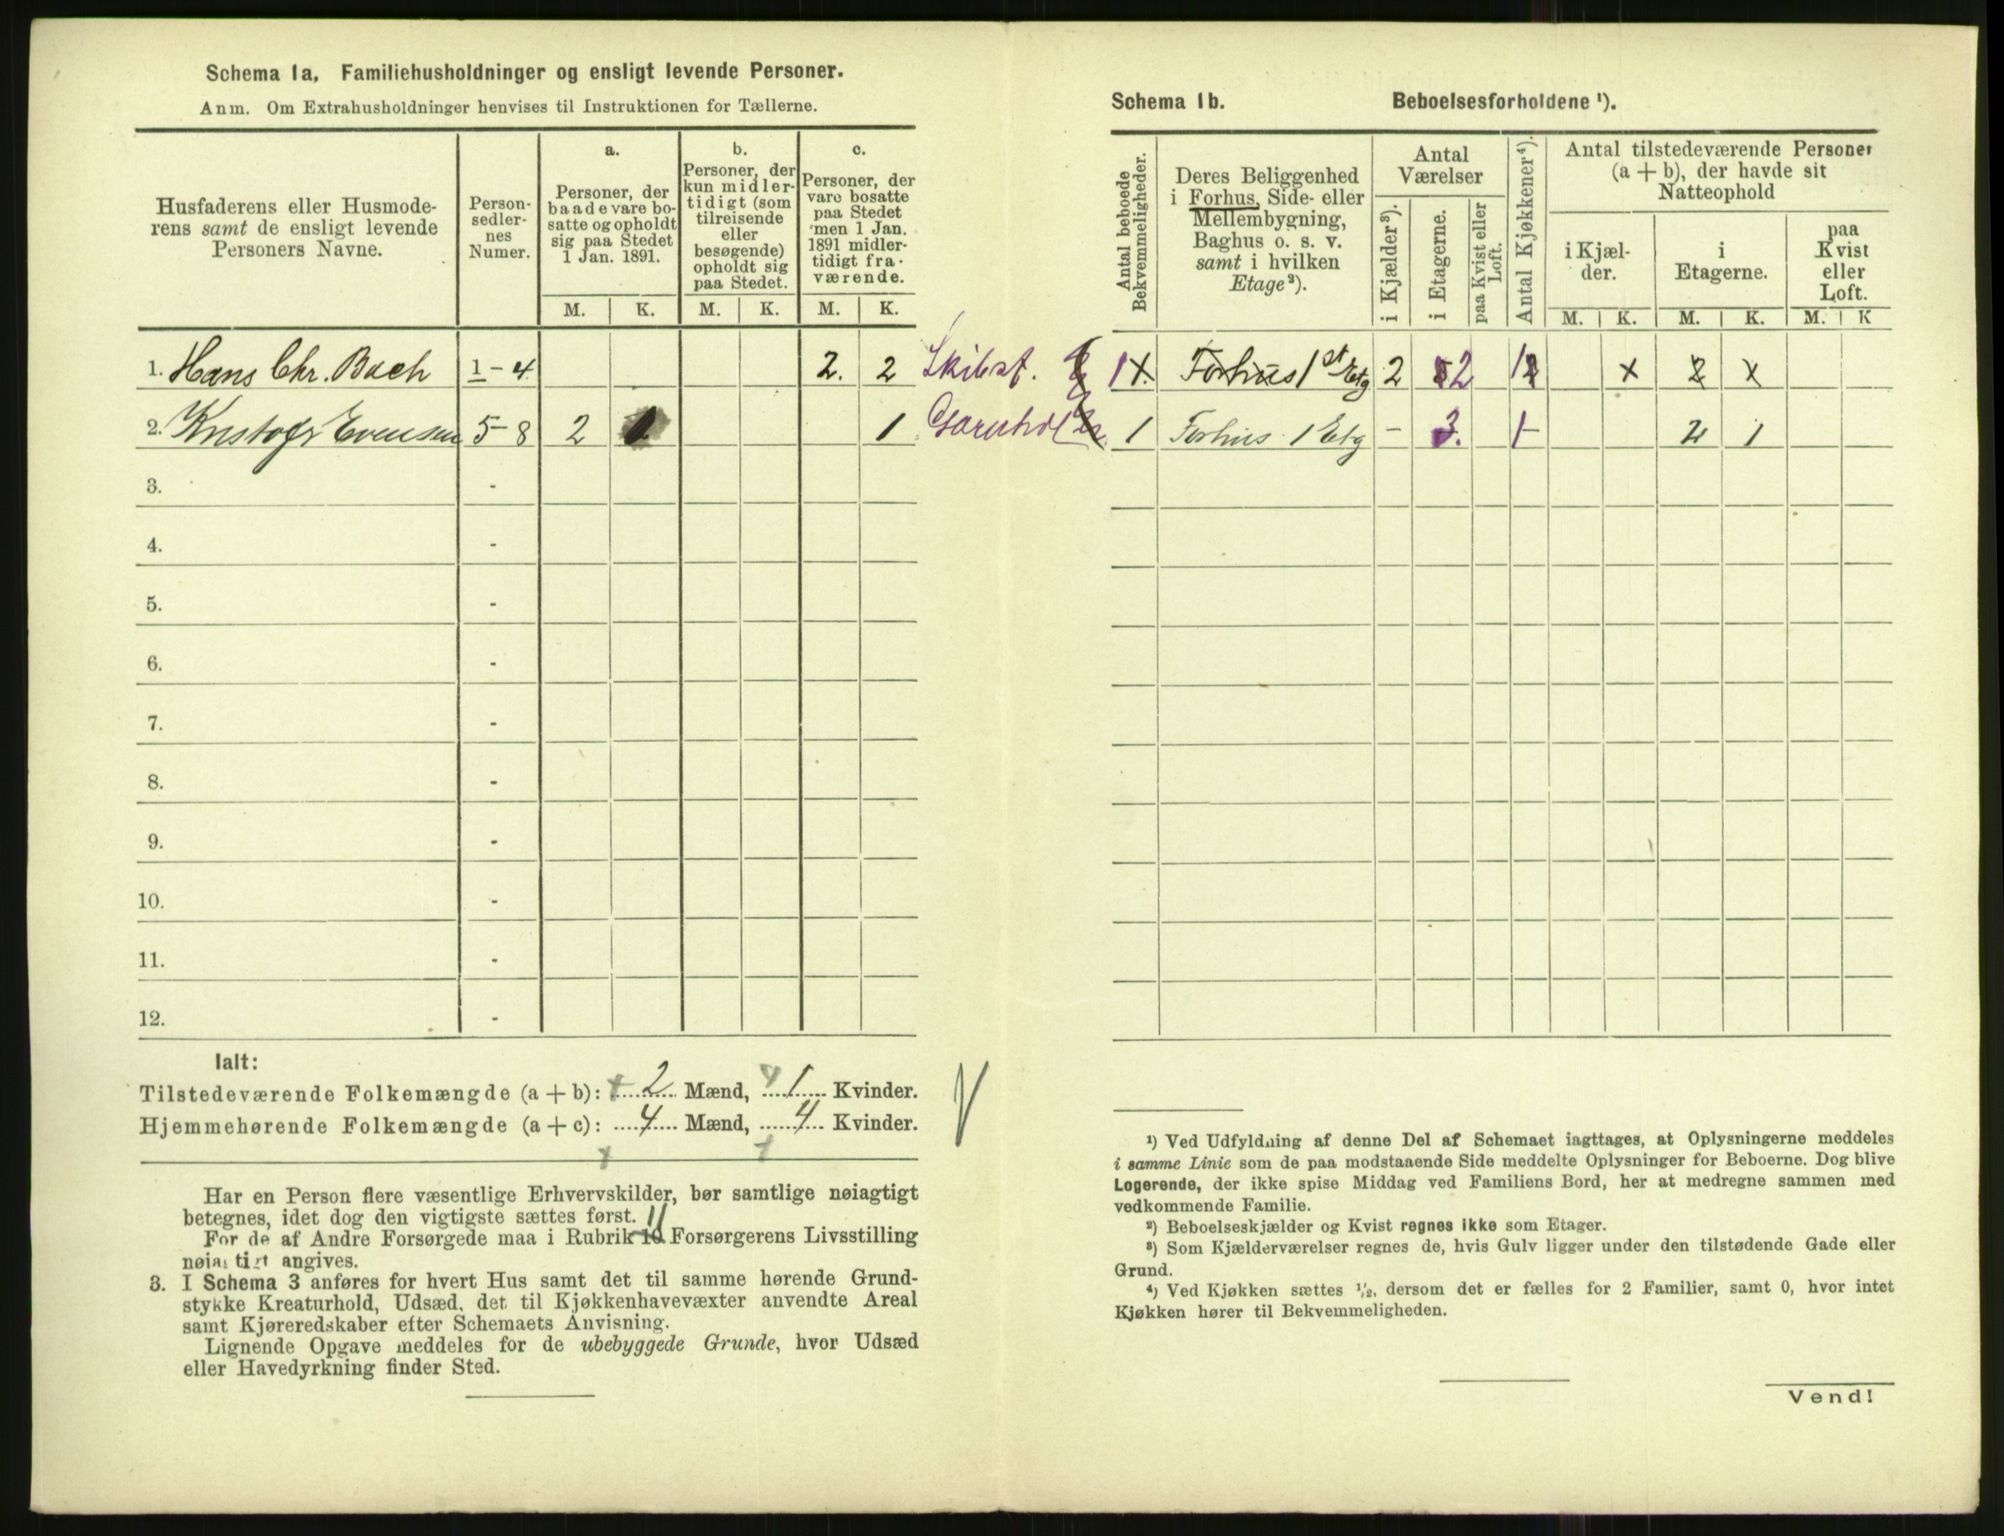 Schema 1a, Familiehusholdninger og ensligt levende Personer.
Anm. Om Extrahusholdninger henvises til Instruktionen for Tællerne.
Husfaderens eller Husmode-
rens samt de ensligt levende
Personers Navne.
Person-
sedler-
nes
Numer.
a.
Personer, der
baade vare bo-
satte og opholdt
sig paa Stedet
1 Jan. 1891.
b.
Personer, der
kun midler-
tidigt (som
tilreisende
eller
besøgende)
opholdt sig
paa Stedet.
c.
Personer, der
vare bosatte
paa Stedet
men 1 Jan.
1891 midler-
tidigt fra-
værende.
M. K. M. K. M. K.
1. Hans Chr. Bach 1-4 2. 2 Skibsf.
2. Kristofr Evensen 5-8 2 1
3. -
4. -
5. -
6. -
7. -
8. -
9. -
10. -
11. -
12. -
Ialt:
Tilstedeværende Folkemængde (a + b): 2 Mænd, 1 Kvinder.
Hjemmehørende Folkemængde (a + c): 4 Mænd, 4 Kvinder.
Har en Person flere væsentlige Erhvervskilder, bør samtlige nøiagtigt
betegnes, idet dog den vigtigste sættes først.
For de af Andre Forsørgede maa i Rubrik 11 Forsørgerens Livsstilling
nøiagtigt angives.
3. I Schema 3 anføres for hvert Hus samt det til samme hørende Grund-
stykke Kreaturhold, Udsæd, det til Kjøkkenhavevæxter anvendte Areal
samt Kjøreredskaber efter Schemaets Anvisning.
Lignende Opgave meddeles for de ubebyggede Grunde, hvor Udsæd
eller Havedyrkning finder Sted.
Schema 1b. Beboelsesforholdene ¹).
Antal beboede
Bekvemmeligheder.
Deres Beliggenhed
i Forhus, Side- eller
Mellembygning,
Baghus o. s. v.
samt i hvilken
Etage²).
Antal
Værelser
i Kjælder³).
i Etagerne.
paa Kvist eller
Loft.
Antal Kjøkkener⁴).
Antal tilstedeværende Personer
(a + b), der havde sit
Natteophold
i Kjæl-
der.
i
Etagerne.
paa
Kvist
eller
Loft.
M. K. M. K. M. K
1 Forhus 1st Etg 2 2 1 x x
1 Forhus 1 Etg - 3. 1 2 1
¹) Ved Udfyldning af denne Del af Schemaet iagttages, at Oplysningerne meddeles
i samme Linie som de paa modstaaende Side meddelte Oplysninger for Beboerne. Dog blive
Logerende, der ikke spise Middag ved Familiens Bord, her at medregne sammen med
vedkommende Familie.
²) Beboelseskjælder og Kvist regnes ikke som Etager.
³) Som Kjælderværelser regnes de, hvis Gulv ligger under den tilstødende Gade eller
Grund.
⁴) Ved Kjøkken sættes ½, dersom det er fælles for 2 Familier, samt 0, hvor intet
Kjøkken hører til Bekvemmeligheden.
Vend!